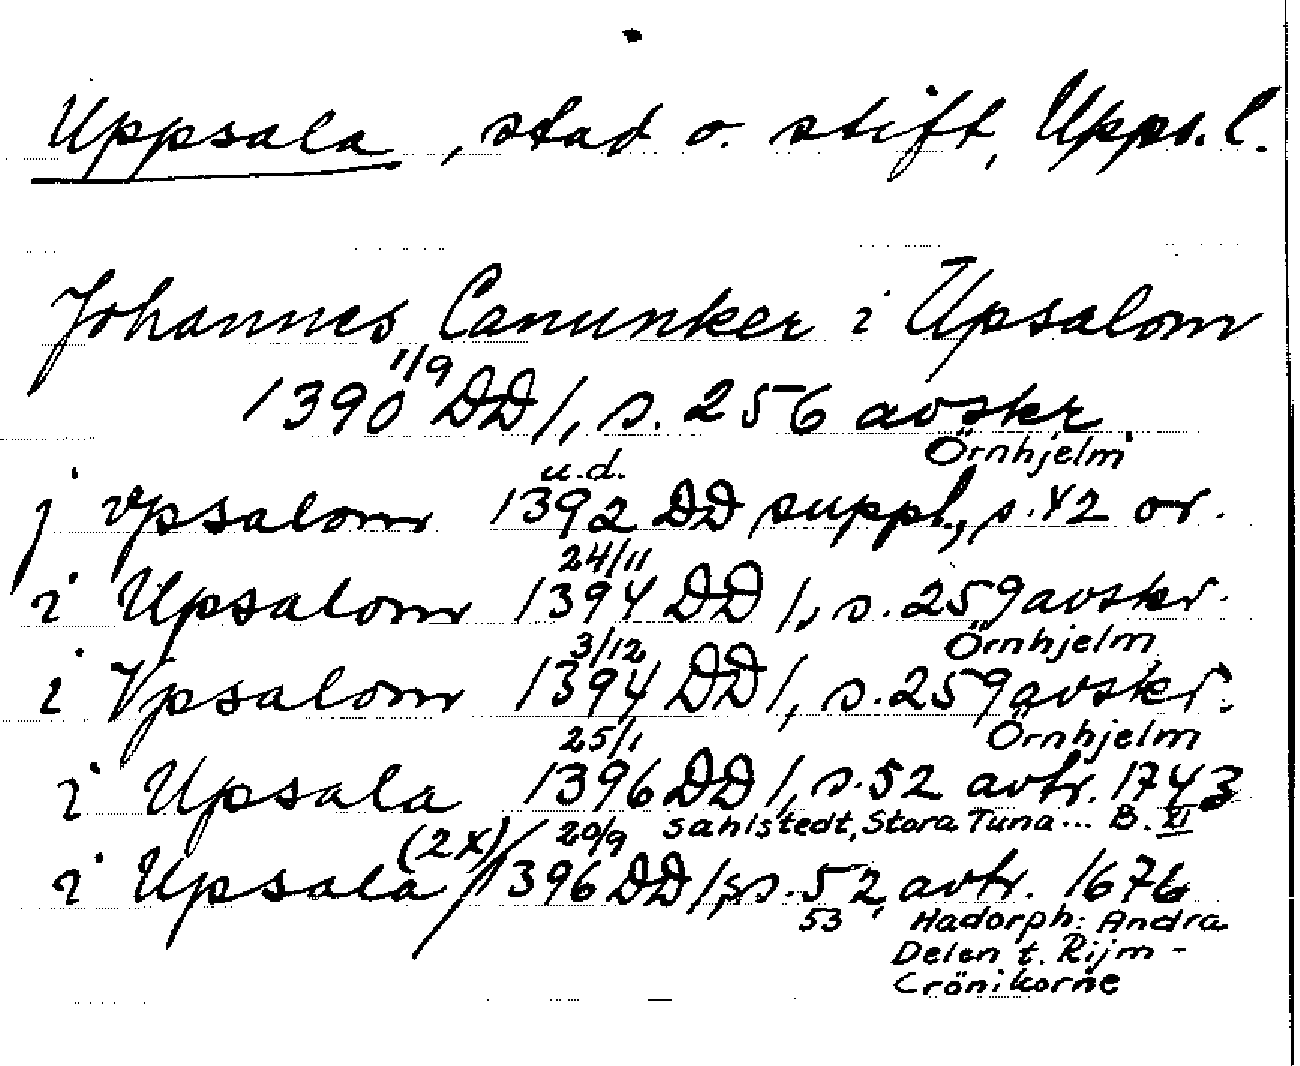 Uppsala, stad o. stift, Upps. l.
Johannes Canunker i Upsalom
1/9
1390 DD 1, s. 256 avskr.
Örnhjelm
u.d.
j vpsalom 1392 DD suppl, s. 42 or.
24/11
i Upsalom 1394 DD 1, s. 259 avskr.
Örnhjelm
3/12
i Vpsalom 1394 DD 1, s. 259 avskr.
Örnhjelm
25/1
i Upsala 1396 DD 1, s. 52 avtr. 1743
Sahlstedt, Stora Tuna... B. XI
(2x) 20/9
i Upsala / 1396 DD 1, s. 52, avtr. 1676
53 Hadorph: Andra
Delen t. Rijm-
Crönikorne